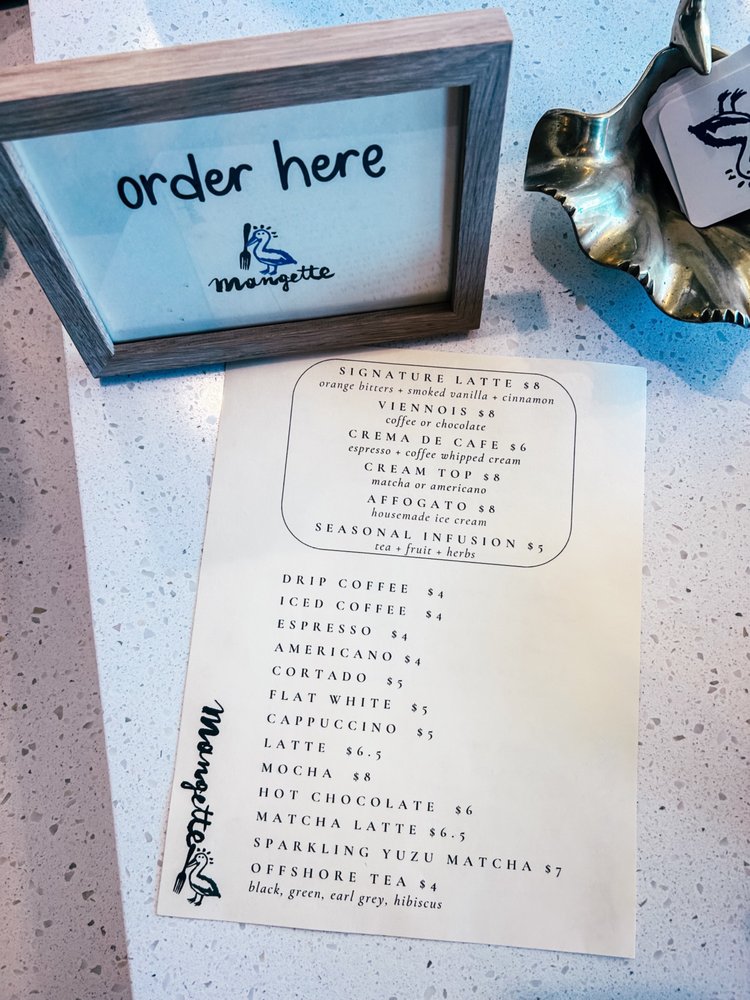 order here
mangette
SIGNATURE LATTE $8
orange bitters + smoked vanilla + cinnamon
VIENNOIS $8
coffee or chocolate
CREMA DE CAFE $6
espresso + coffee whipped cream
CREAM TOP $8
matcha or americano
AFFOGATO $8
housemade ice cream
SEASONAL INFUSION $5
tea + fruit + herbs
DRIP COFFEE $4
ICED COFFEE $4
ESPRESSO $4
AMERICANO $4
CORTADO $5
FLAT WHITE $5
CAPPUCCINO $5
LATTE $6.5
MOCHA $8
HOT CHOCOLATE $6
MATCHA LATTE $6.5
SPARKLING YUZU MATCHA $7
OFFSHORE TEA $4
black, green, earl grey, hibiscus
mangette